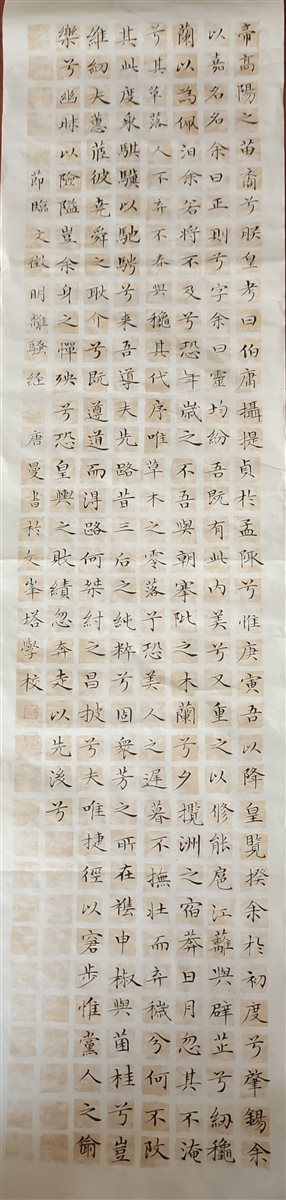 帝高陽之苗裔兮朕皇考曰伯庸攝提貞於孟陬兮惟庚寅吾以降皇覽揆余於初度兮肇錫余
以嘉名名余曰正則兮字余曰靈均紛吾既有此內美兮又重之以修能扈江蘺與辟芷兮紉穐
蘭以為佩汩余若將不及兮恐年歲之不吾與朝搴阰之木蘭兮夕攬洲之宿莽日月忽其不淹
兮其草落人不弃不春與穐其代序唯草木之零落兮恐美人之遲暮不撫壯而弃穢兮何不改
其此度乘騏驥以馳騁兮来吾導夫先路昔三后之純粹兮固衆芳之所在襍申椒與菌桂兮豈
維紉夫蕙茝彼堯舜之耿介兮既遵道而得路何桀紂之昌披兮夫唯捷徑以窘步惟黨人之偷
樂兮幽昧以險隘豈余身之憚殃兮恐皇輿之敗績忽奔走以先後兮
節臨文徵明離騷經 唐曼書於文峯塔學校